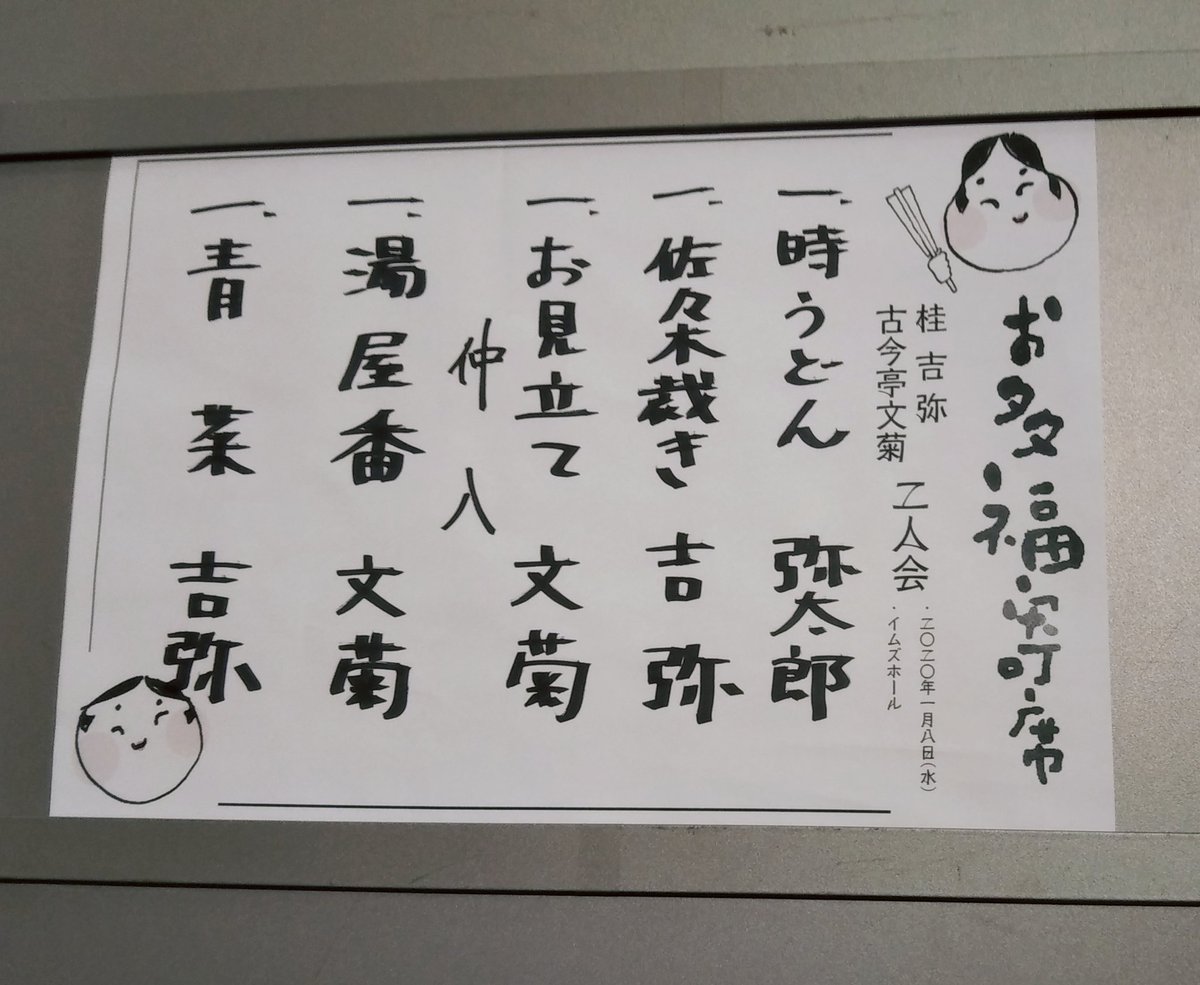 お多福寄席
桂吉弥
古今亭文菊
二人会
・二〇二〇年一月八日(水)
・イムズホール
一、時うどん 弥太郎
一、佐々木裁き 吉弥
一、お見立て 文菊
仲入
一、湯屋番 文菊
一、青菜 吉弥